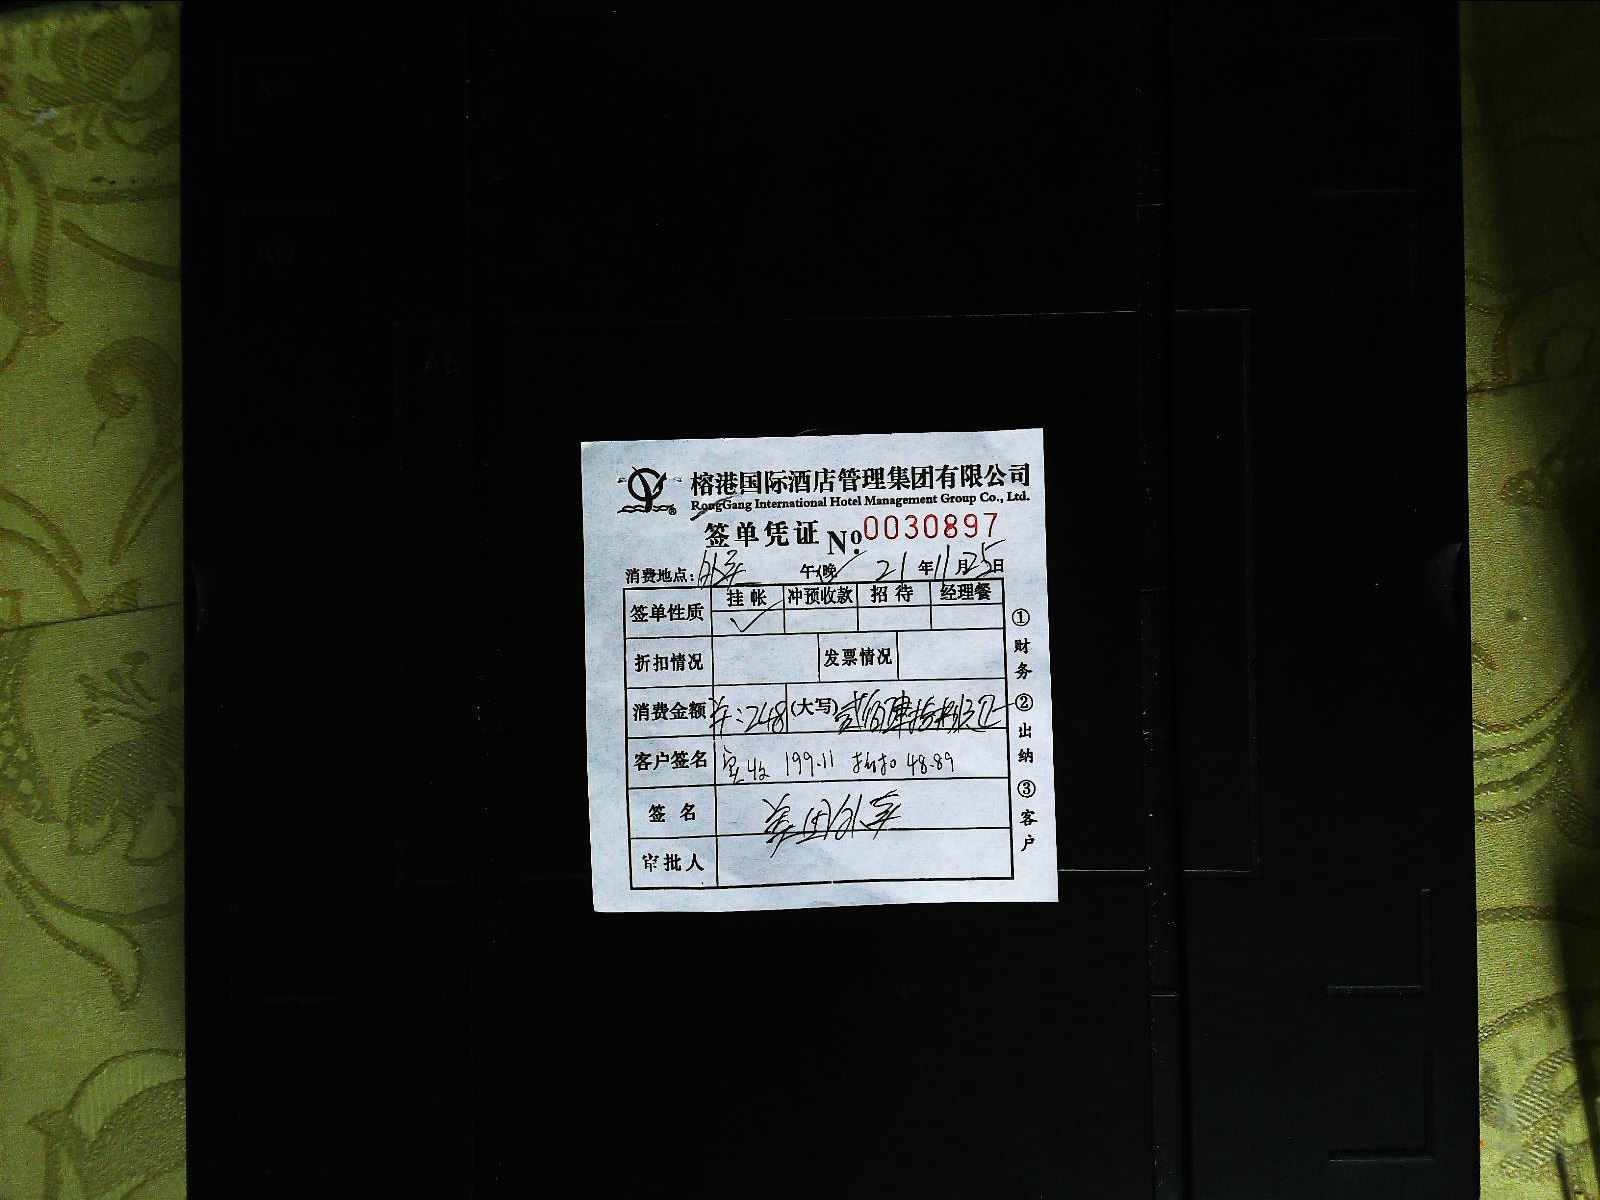 榕港国际酒店管理集团有限公司
RongGang International Hotel Management Group Co., Ltd.
签单凭证 No. 0030897
消费地点：外卖 午(晚) 21年11月25日
签单性质 挂帐 冲预收款 招待 经理餐
✓
折扣情况 发票情况
消费金额 ：248 (大写) 贰佰肆拾捌元正
客户签名 实收 199.11 折扣 48.89
签名 美团外卖
审批人
①财务 ②出纳 ③客户